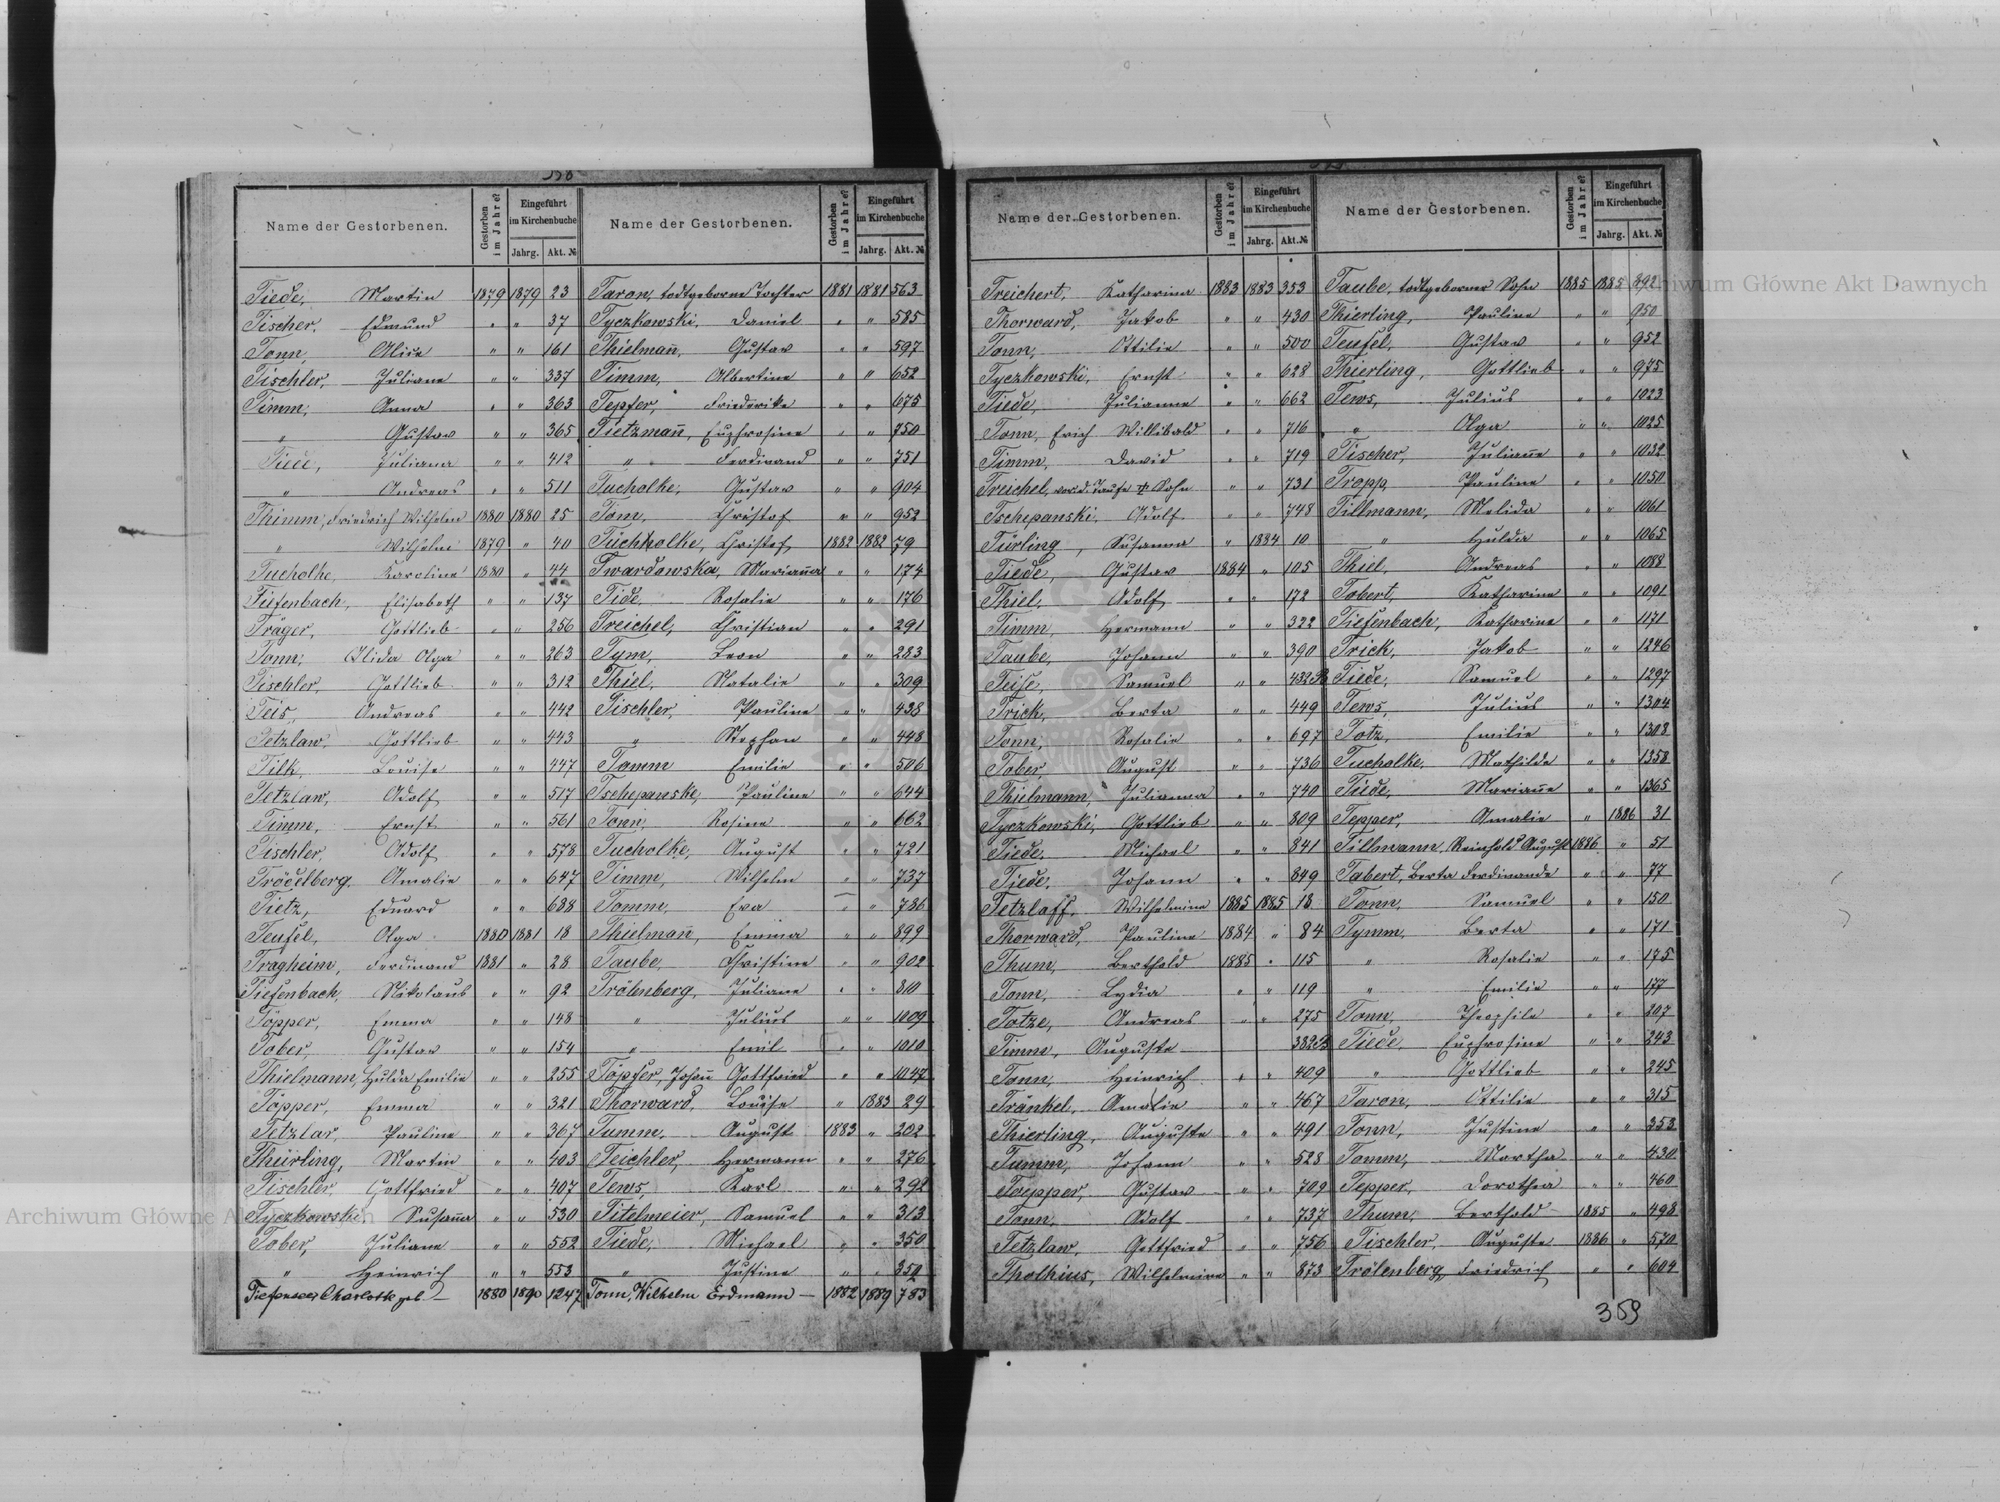 358
Name der Gestorbenen. Gestorben im Jahre? Eingeführt im Kirchenbuche Jahrg. Akt. №
Tiede, Martin 1879 1879 23
Tischer, Edmund " " 37
Tonn, Alice " " 161
Tischler, Juliane " " 337
Timm, Anna " " 363
" Gustav " " 365
Tiede, Juliana " " 412
" Andreas " " 511
Thimm, Friedrich Wilhelm 1880 1880 25
" Wilhelm 1879 " 40
Tucholke, Karoline 1880 " 44
Tiefenbach, Elisabeth " " 137
Träger, Gottlieb " " 256
Tonn, Olga " " 263
Tischler, Gottlieb " " 312
Teis, Andreas " " 442
Tetzlaw, Gottlieb " " 443
Tilk, Louise " " 447
Tetzlaw, Adolf " " 517
Timm, Ernst " " 561
Tischler, Adolf " " 578
Trödelberg, Amalie " " 647
Tietz, Eduard " " 688
Teufel, Olga 1880 1881 18
Tragheim, Ferdinand 1881 " 28
Tiefenbach, Nikolaus " " 92
Töpper, Emma " " 148
Tober, Gustav " " 154
Thielmann, Hulda Emilie " " 255
Töpper, Emma " " 321
Tetzlar, Pauline " " 367
Thürling, Martin " " 403
Tischler, Gottfried " " 407
Tyczkowski, Susan̄a " " 530
Tober, Juliane " " 552
" Heinrich " " 553
Charlotte geb — 1880 1890 1247
Name der Gestorbenen. Gestorben im Jahre? Eingeführt im Kirchenbuche Jahrg. Akt. №
Taron, todtgeborne Tochter 1881 1881 563
Tyczkowski, Daniel " " 585
Thielman̄, Gustav " " 597
Timm, Albertine " " 652
Tepfer, Friederike " " 675
Tietzman̄, Euphrosine " " 750
" Ferdinand " " 751
Tucholke, Gustav " " 904
Tom, Christof " " 952
Tuchholke, Christof 1882 1882 79
Twardowska, Marian̄a " " 174
Tide, Rosalie " " 176
Treichel, Christian " " 291
Tym, Leon " " 283
Thiel, Natalie " " 309
Tischler, Pauline " " 438
" Stephan " " 448
Tomm Emilie " " 506
Tschepanske, Pauline " " 644
Tonn, Rosine " " 662
Tucholke, August " " 721
Timm, Wilhelm " " 737
Tomm, Eva " " 786
Thielman̄, Emma " " 899
Taube, Christine " " 902
Trölenberg, Juliane " " 810
" Julius " " 1009
" Emil " " 1010
Töpfer, Johan̄ Gottfried " " 1047
Thorward, Louise " 1883 29
Tumm, August 1883 " 202
Teichler, Hermann " " 276
Tews, Karl " " 292
Titelmeier, Samuel " " 313
Tiede, Michael " " 350
" Justine " "
Tonn, Wilhelm Erdmann — 1882 1889 783
Name der Gestorbenen. Gestorben im Jahre? Eingeführt im Kirchenbuche Jahrg. Akt. №
Treichert, Katharina 1883 1883 353
Thorward, Jakob " " 430
Tonn, Ottilie " " 500
Tyczkowski, Ernst " " 628
Tiede, Julianne " " 662
Tonn, Erich Willibald " " 716
Timm, David " " 719
Treichel, vor d. Taufe † Sohn " " 731
Tschepanski, Adolf " " 748
Türling, Susanna " 1884 10
Tiede, Gustav 1884 " 105
Thiel, Adolf " " 172
Timm, Hermann " " 322
Taube, Johann " " 390
Teise, Samuel " " 432
Trick, Berta " " 449
Tonn, Rosalie " " 697
Tober, August " " 736
Thielmann, Julianna " " 740
Tyczkowski, Gottlieb " " 809
Tiede, Michael " " 841
Tiede, Johann " " 849
Tetzlaff, Wilhelmine 1885 1885 18
Thorward, Pauline 1884 " 84
Thum, Berthold 1885 " 115
Tonn, Lydia " " 119
Totze, Andreas " " 275
Timm, Auguste
Tonn, Heinrich " " 409
Tränkel, Amalie " " 467
Thierling, Auguste " " 491
Tumm, Johann " " 528
Toepper, Gustav " " 709
Tonn, Adolf " " 737
Tetzlaw, Gottfried " " 756
Tholkius, Wilhelmine " " 873
Name der Gestorbenen. Gestorben im Jahre? Eingeführt im Kirchenbuche Jahrg. Akt. №
Taube, todtgeborner Sohn 1885 1885 392
Thierling, Pauline " " 950
Teufel, Gustav " " 952
Thierling, Gottlieb " " 975
Tews, Julius " " 1023
" Olga " " 1025
Tischer, Julian̄e " " 1032
Trepp, Pauline " " 1050
Tillmann, Melida " " 1061
" Hulda " " 1065
Thiel, Andreas " " 1088
Tobert, Katharine " " 1091
Tiefenbach, Katharine " " 1171
Trick, Jakob " " 1246
Tiede, Samuel " " 1297
Tews, Julius " " 1304
Totz, Emilie " " 1308
Tucholke, Mathilde " " 1358
Tiede, Marian̄e " " 1365
Tepper, Amalie " 1886 31
Tillmann, Reinhold August 1886 " 51
Tabert, Berta Ferdinande " " 77
Tonn, Samuel " " 150
Tymm, Berta " " 171
" Rosalie " " 175
" Emilie " " 177
Tonn, Theophile " " 207
Tiede, Euphrosine " " 243
" Gottlieb " " 245
Taron, Ottilie " " 315
Tonn, Justine " " 353
Tomm, Martha " " 430
Tepper, Dorothea " " 460
Thum, Berthold 1885 " 498
Tischler, Auguste 1886 " 570
Trölenberg, Friedrich " " 604
359
Archiwum Główne Akt Dawnych
Archiwum Główne Akt Dawnych